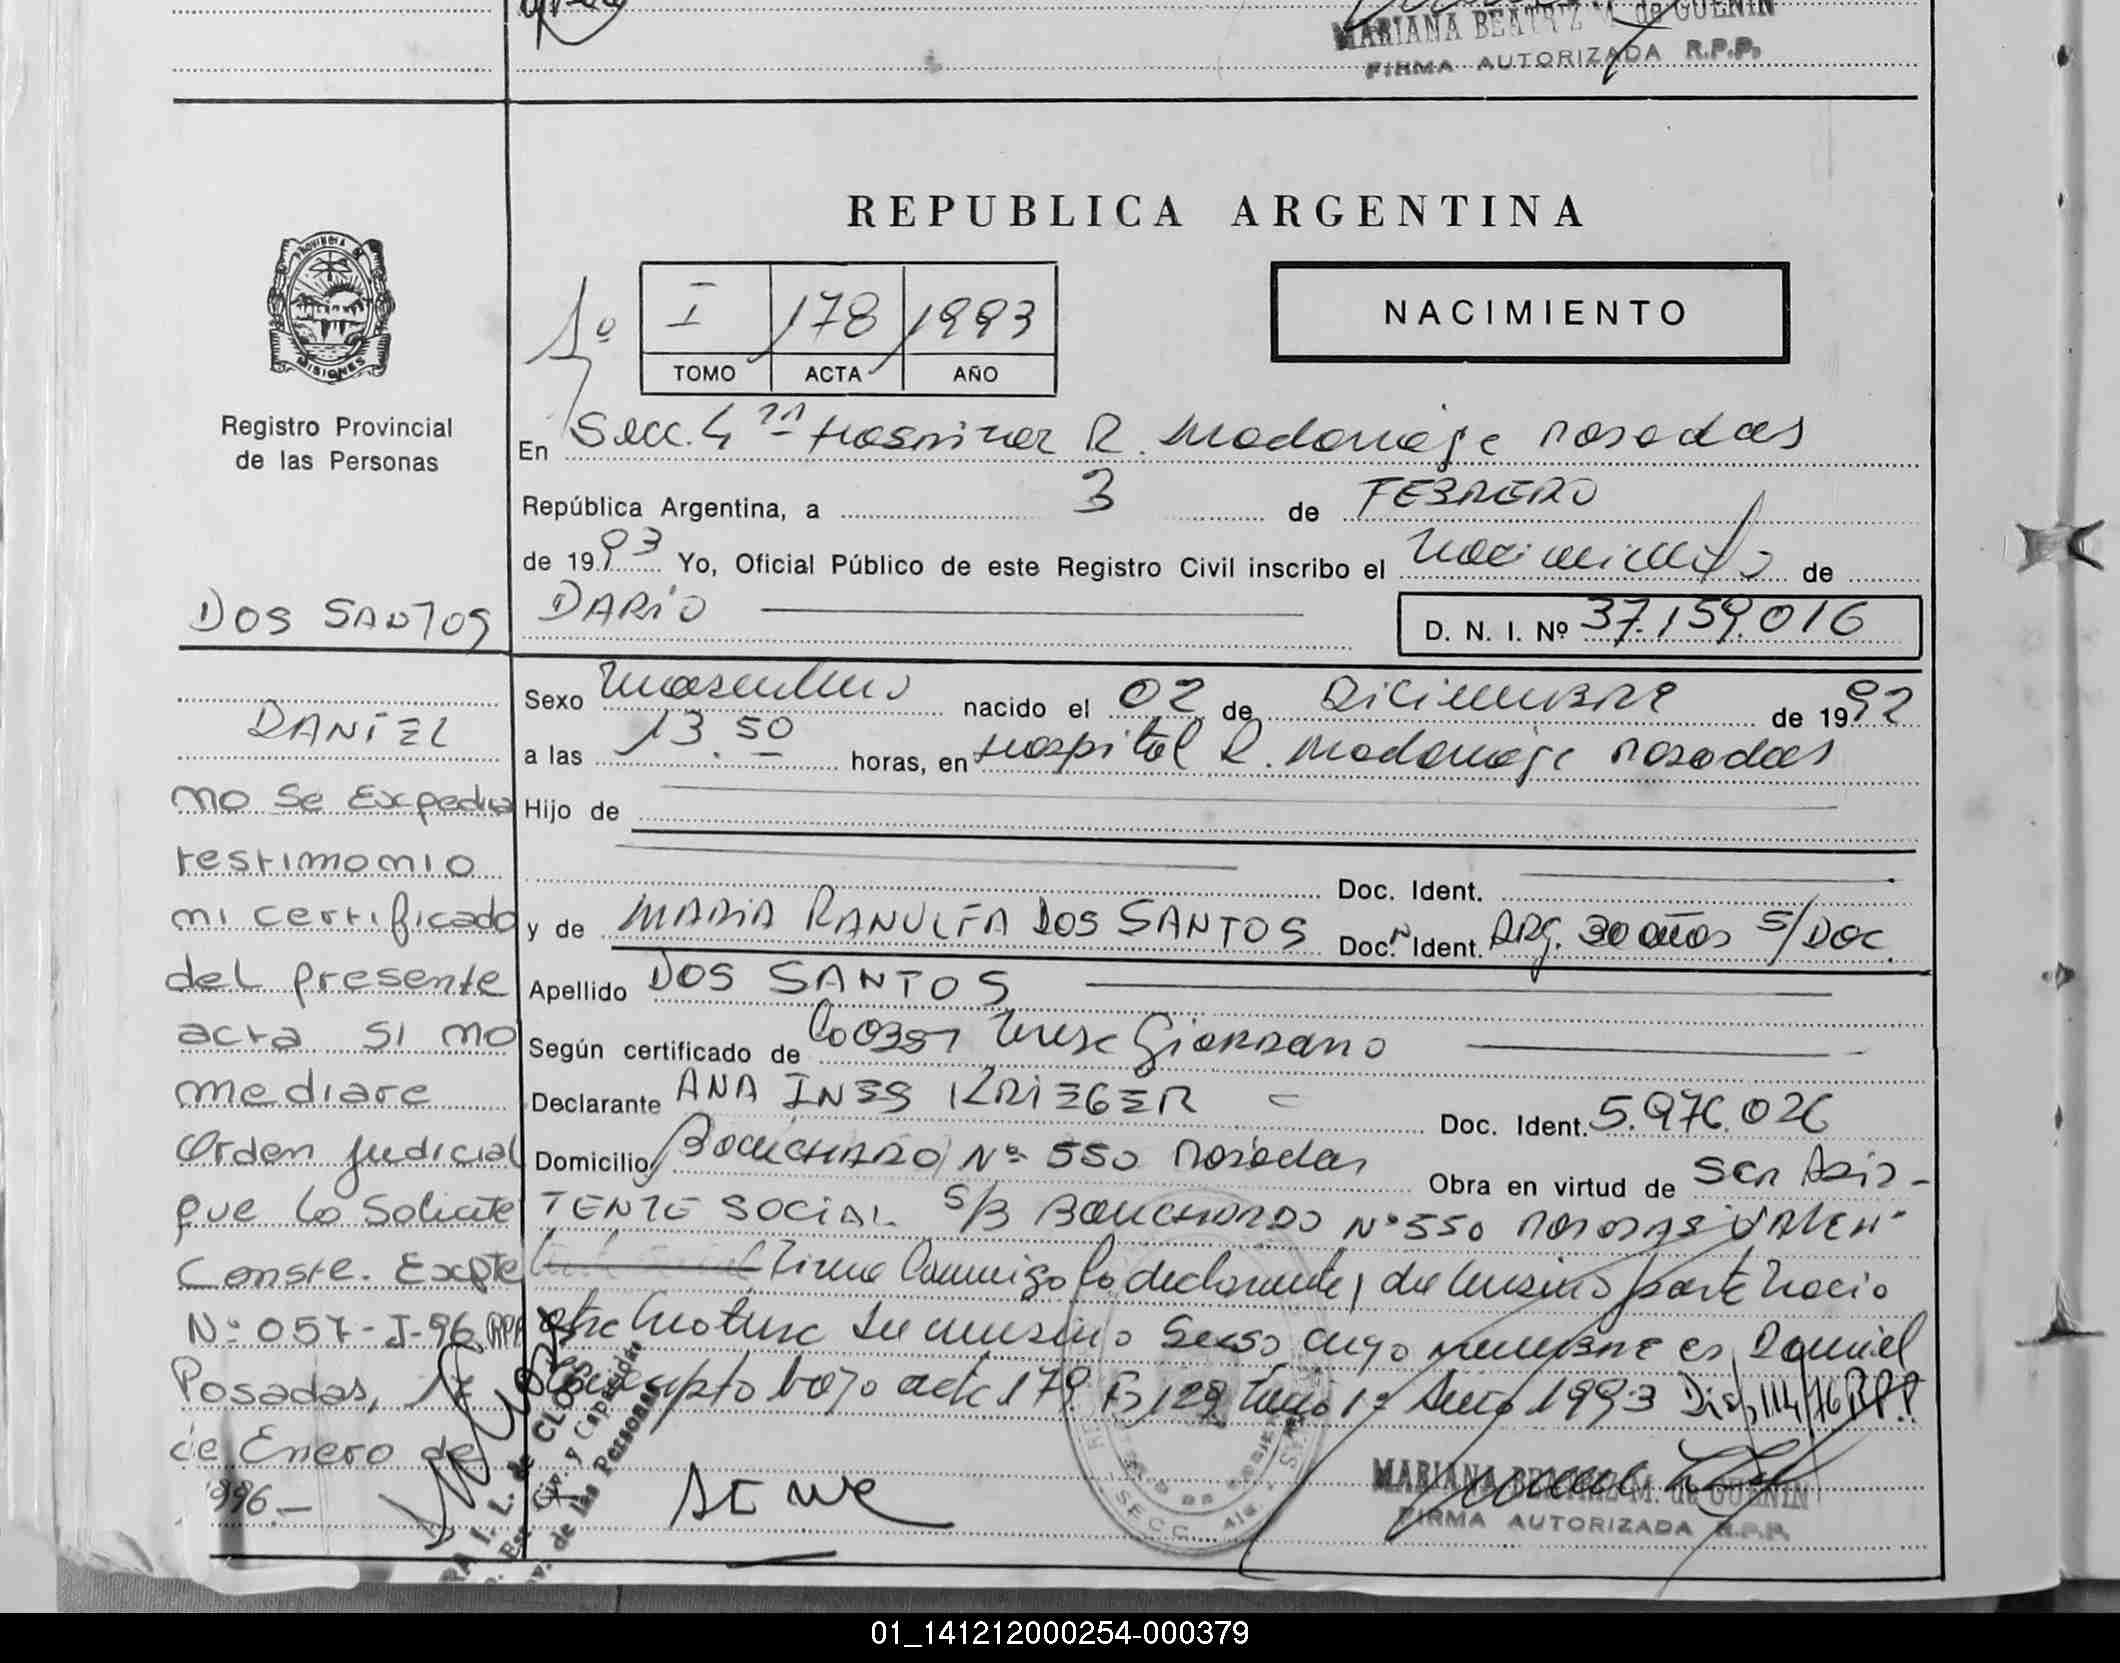 MARIANA BEATRIZ M. de GUENIN
FIRMA AUTORIZADA R.P.P.
REPUBLICA ARGENTINA
PROVINCIA DE
MISIONES
Registro Provincial
de las Personas
1º
I 178 1993
TOMO ACTA AÑO
NACIMIENTO
En Secc. 4ta Hospital R. Madariaga Posadas
República Argentina, a 3 de FEBRERO
de 1993 Yo, Oficial Público de este Registro Civil inscribo el nacimiento de
DARIO
D. N. I. Nº 37.159.016
Sexo masculino nacido el 02 de Diciembre de 1992
a las 13.50 horas, en Hospital R. Madariaga Posadas
Hijo de
Doc. Ident.
y de MARIA RANULFA DOS SANTOS Doc. Ident. ARG. 30 años S/DOC.
Apellido DOS SANTOS
Según certificado de Giordano
Declarante ANA INES KRIEGER Doc. Ident. 5.976.026
Domicilio BOUCHARD Nº 550 Posadas Obra en virtud de Ser Asis-
TENTE SOCIAL S/B BOUCHARDO Nº 550 POSADAS
Firma Conmigo la declarante, del mismo parte nacio
otra criatura del mismo Sexo cuyo nombre es Daniel
Inscripto bajo acta 179 Fº 129 Tomo 1º Año 1993 Dis. 114/76 R.P.P.
MARIANA BEATRIZ M. de GUENIN
FIRMA AUTORIZADA R.P.P.
DOS SANTOS
DANIEL
no Se Expedira
testimonio
ni certificado
del presente
acta si no
mediare
Orden judicial
que lo Solicite
Conste. Expte
Nº 057-I-96 RPP
Posadas, 17
de Enero de
1996.-
I. L. de CLOSS
Est. Civ. y Capacidad
Prov. de las Personas
SECC.
01_141212000254-000379